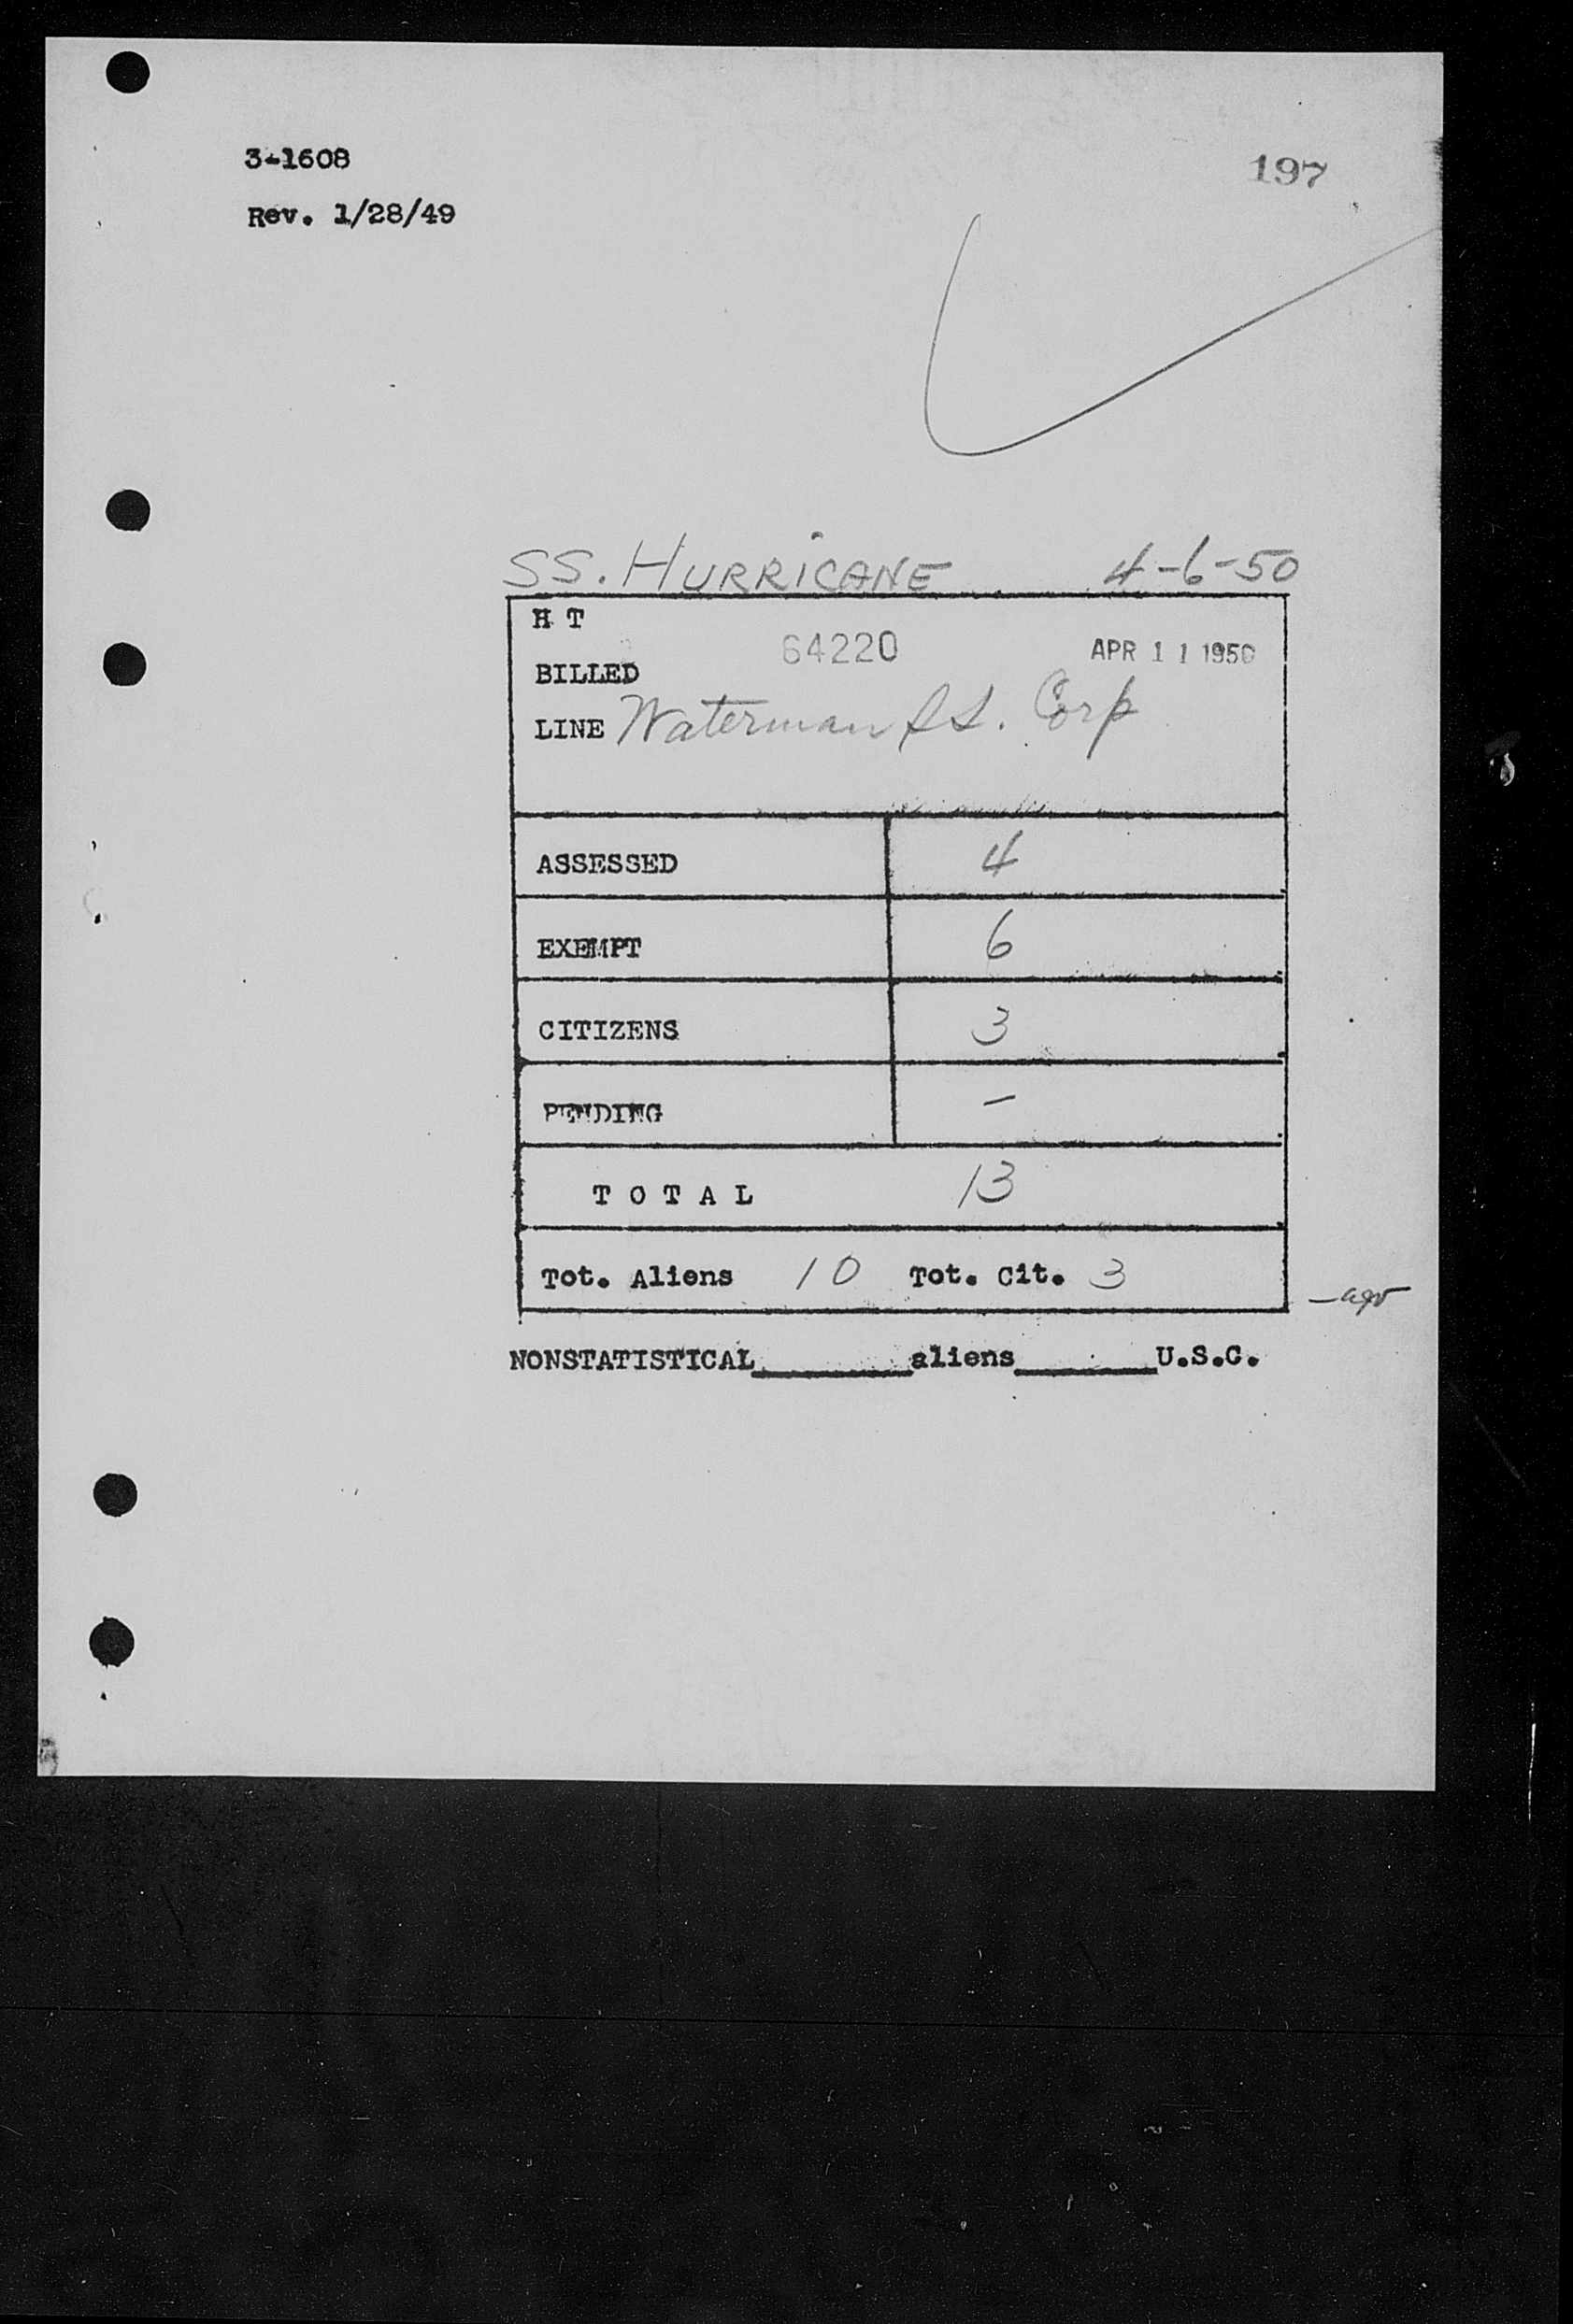 3-1608
197
Rev. 1/28/49
SS. HURRICANE 4-6-50
H T
64220 APR 11 1950
BILLED
LINE Waterman S.S. Corp
ASSESSED 4
EXEMPT 6
CITIZENS 3
PENDING —
TOTAL 13
Tot. Aliens 10 Tot. Cit. 3
NONSTATISTICAL________aliens________U.S.C.